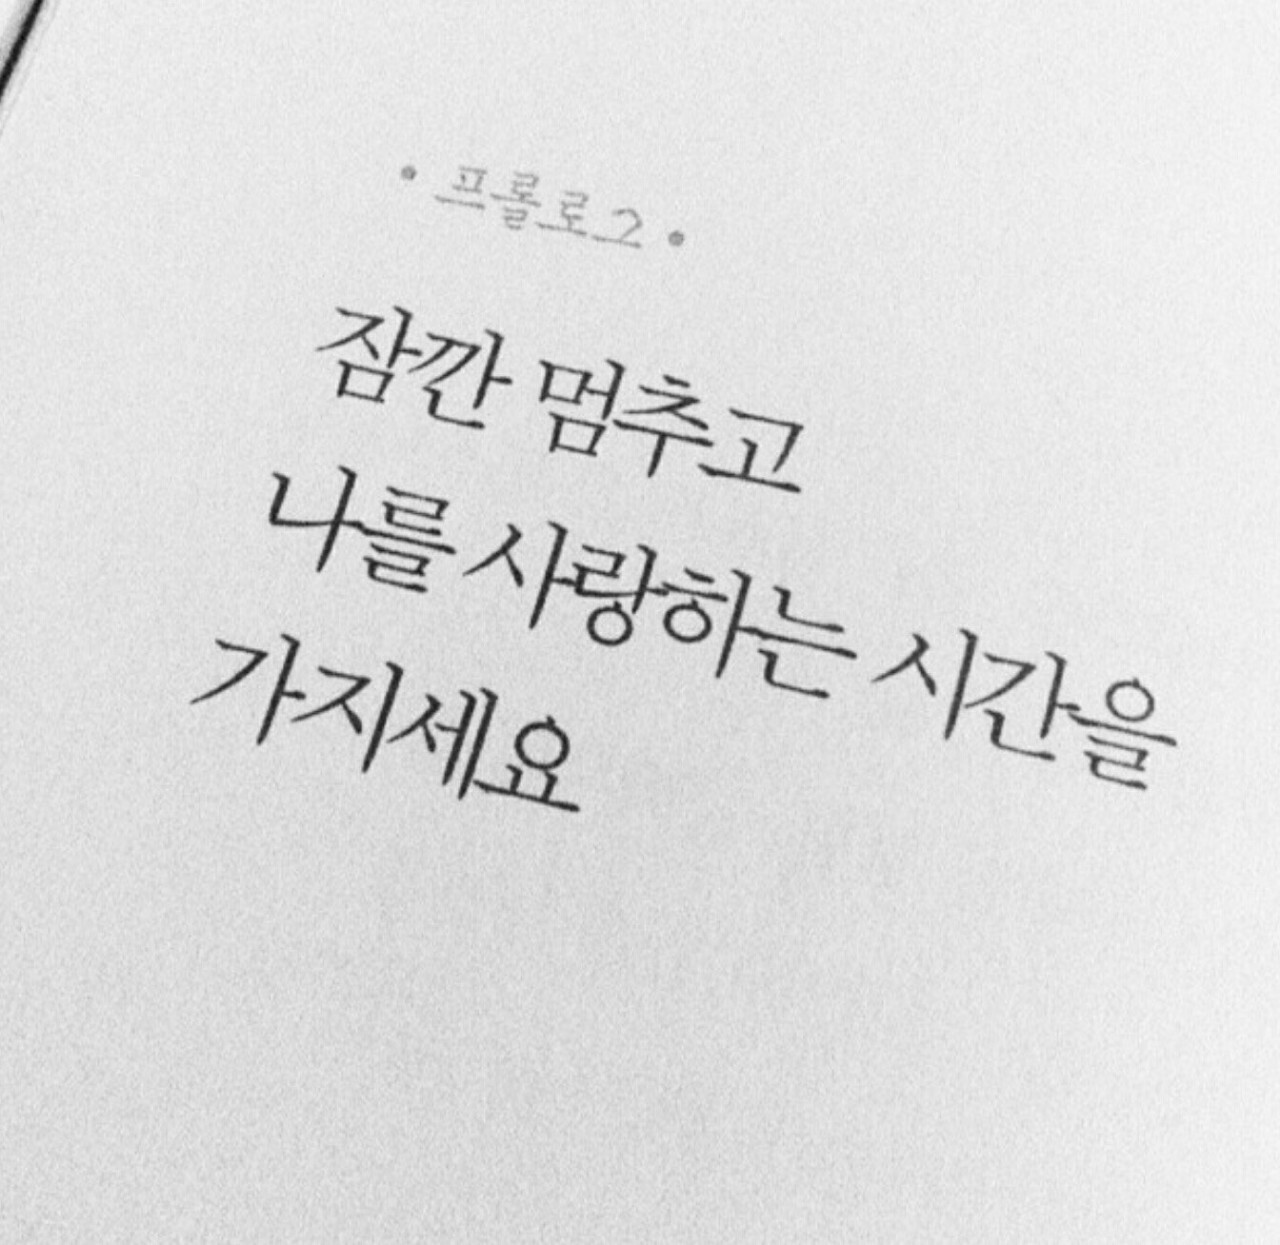 • 프롤로그 •
잠깐 멈추고
나를 사랑하는 시간을
가지세요